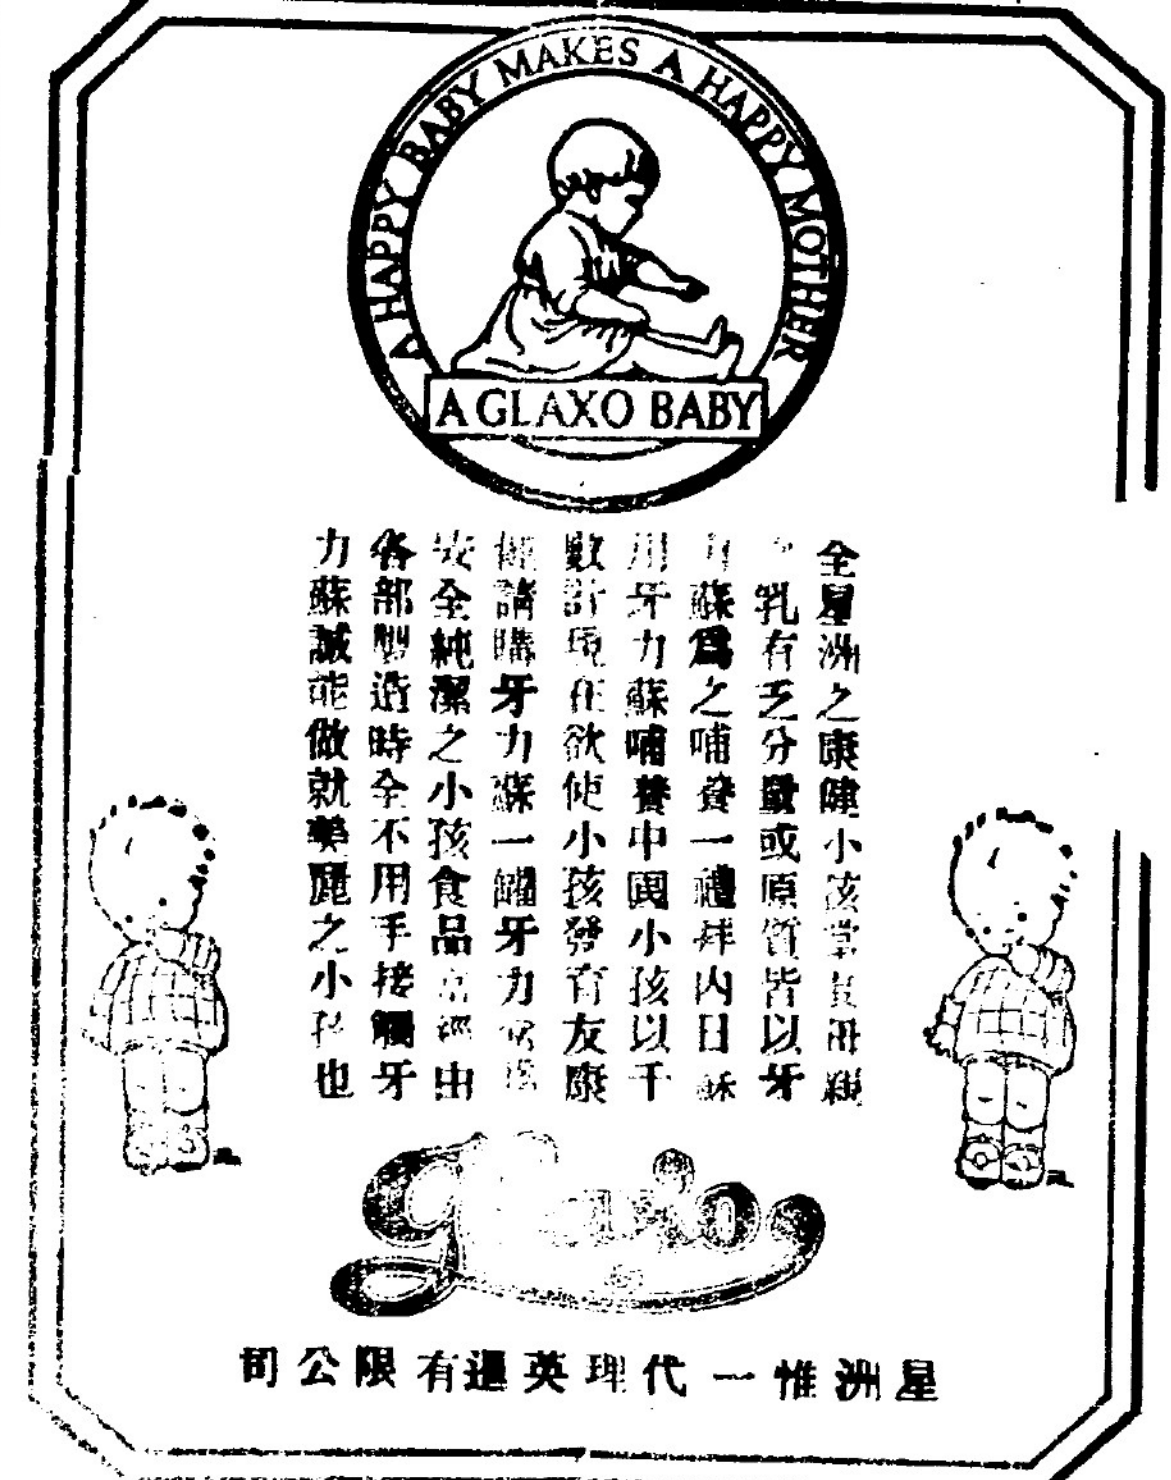 A HAPPY BABY MAKES A HAPPY MOTHER
A GLAXO BABY
全星洲之康健小孩當其母親
乳有乏分量或原質皆以牙
力蘇為之哺養一禮拜内日
用牙力蘇哺養中國小孩以千
數計現在欲使小孩發育友康
健請購牙力蘇一罐牙力
安全純潔之小孩食品 由
各部製造時全不用手接觸牙
力蘇誠能做就美麗之小孩也
Glaxo
星洲惟一代理英暹有限公司